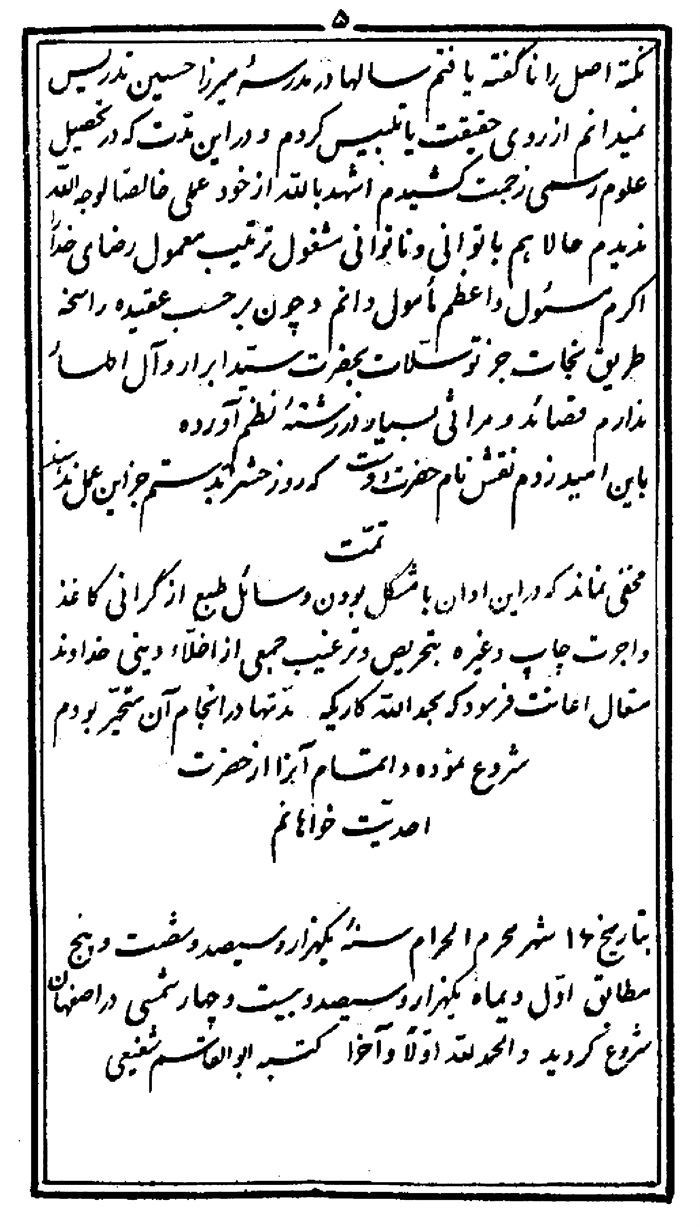 ۵
نکته اصل را ناگفته یافتم سالها در مدرسهٔ میرزا حسین تدریس
نمیدانم از روی حقیقت یا تلبیس کردم و در این مدّت که در تحصیل
علوم رسمی زحمت کشیدم اشهد بالله از خود عملی خالصاً لوجه الله
ندیدم حالا هم با توانی و ناتوانی مشغول ترتیب معمول رضای خدا را
اکرم مسئول و اعظم مأمول دانم و چون بر حسب عقیده راسخه
طریق نجات جز توسّلات بحضرت سیّد ابرار و آل اطهار
ندارم قصائد و مراثی بسیار در رشتهٔ نظم آورده
باین امید زدم نقش نام حضرت دوست که روز حشر بدستم جز این عمل ندا سند
تمّت
مخفی نماند که در این اوان با مشکل بودن وسائل طبع از گرانی کاغذ
و اجرت چاپ و غیره بتحریص و ترغیب جمعی از اخلّاء دینی خداوند
متعال اعانت فرمود که بحمد الله کاریکه مدّتها در انجام آن متحیّر بودم
شروع نموده و اتمام آنرا از حضرت
احدیّت خواهانم
بتاریخ ۱۶ شهر محرم الحرام سنهٔ یکهزار و سیصد و شصت و پنج
مطابق اوّل دیماه یکهزار و سیصد و بیست و چهار شمسی در اصفهان
شروع گردید و الحمد لله اوّلاً و آخرا کتبه ابوالقاسم شفیعی